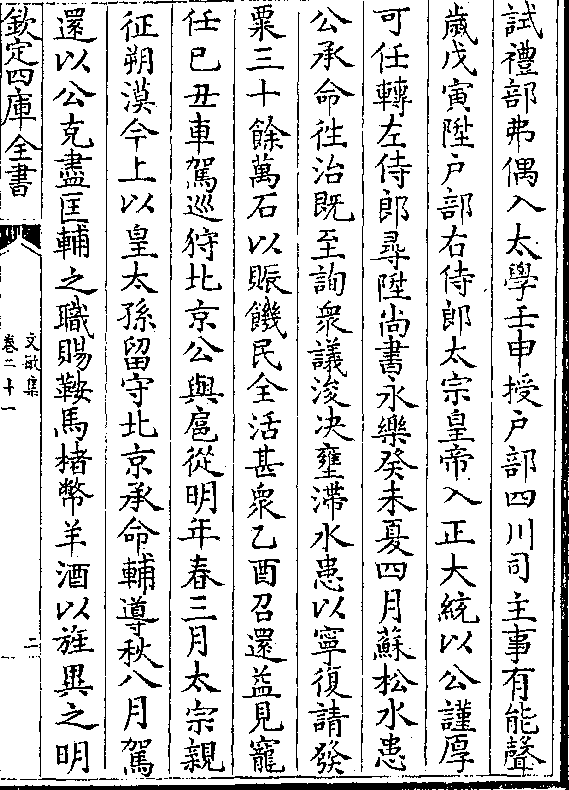 試禮部弗偶入太學壬申授户部四川司主事有能聲
歲戊寅陞户部右侍郎太宗皇帝入正大統以公謹厚
可任轉左侍郎尋陞尚書永樂癸未夏四月蘇松水患
公承命徃治既至詢衆議浚决壅滯水患以寧復請發
粟三十餘萬石以賑饑民全活甚衆乙酉召還益見寵
任已丑車駕巡狩北京公與扈從明年春三月太宗親
征朔漠今上以皇太孫留守北京承命輔導秋八月駕
還以公克盡匡輔之職賜鞍馬楮幣羊酒以旌異之明
欽定四庫全書
文敏集
卷二十一
二